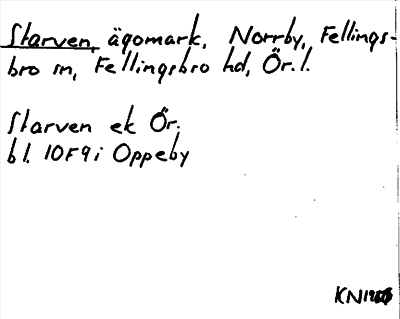 Starven, ägomark, Norrby, Fellings-
bro sn, Fellingsbro hd, Ör. l.
Starven ek Ör.
bl. 10F9i Oppeby